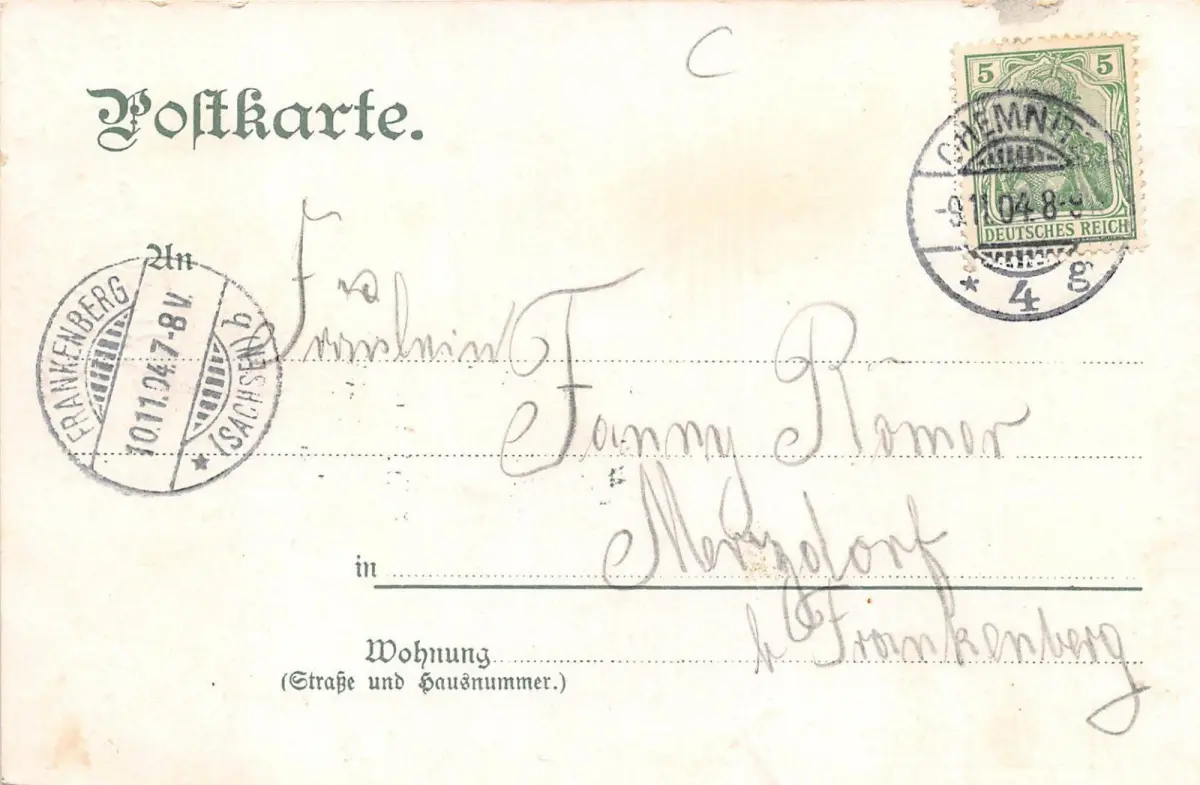 C
Postkarte.
5 5
DEUTSCHES REICH
CHEMNITZ
9.11.04.8-9
* 4 g
An
FRANKENBERG
10.11.04.7-8 V.
* (SACHSEN) b
Fräulein
Fanny Römer
in Merzdorf
b Frankenberg
Wohnung
(Straße und Hausnummer.)